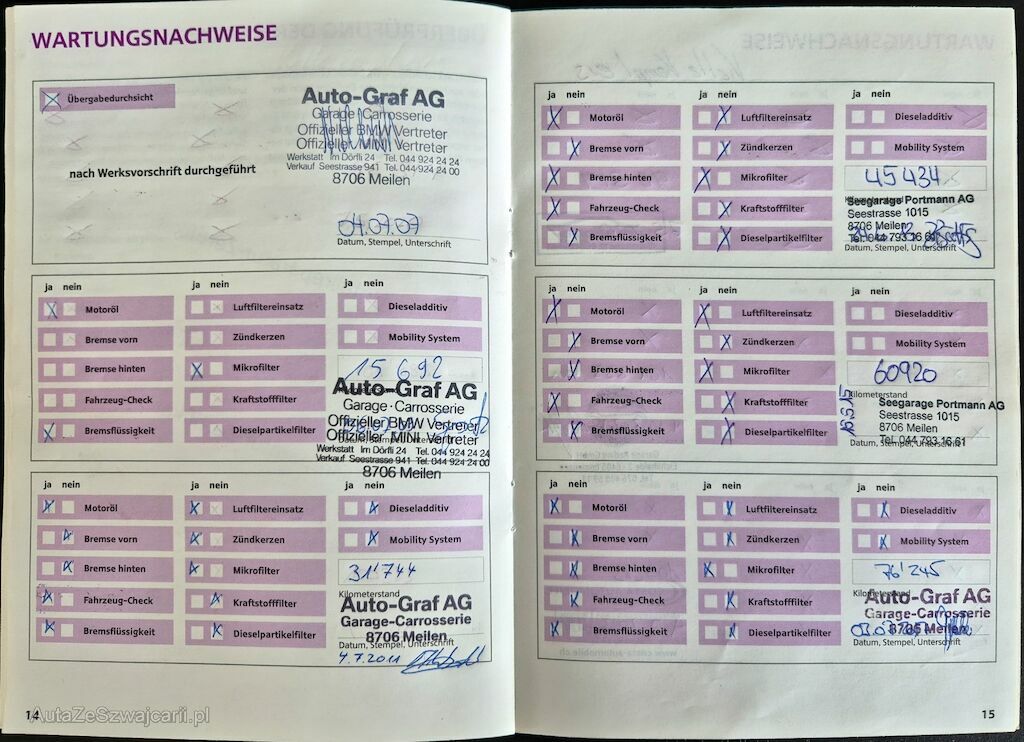 WARTUNGSNACHWEISE
Übergabedurchsicht
nach Werksvorschrift durchgeführt
Auto-Graf AG
Garage · Carrosserie
Offizieller BMW Vertreter
Offizieller MINI Vertreter
Werkstatt Im Dörfli 24 Tel. 044 924 24 24
Verkauf Seestrasse 941 Tel. 044 924 24 00
8706 Meilen
04.07.07
Datum, Stempel, Unterschrift
ja nein
Motoröl
Bremse vorn
Bremse hinten
Fahrzeug-Check
Bremsflüssigkeit
ja nein
Luftfiltereinsatz
Zündkerzen
Mikrofilter
Kraftstofffilter
Dieselpartikelfilter
ja nein
Dieseladditiv
Mobility System
15 692
Auto-Graf AG
Garage · Carrosserie
Offizieller BMW Vertreter
Offizieller MINI Vertreter
Werkstatt Im Dörfli 24 Tel. 044 924 24 24
Verkauf Seestrasse 941 Tel. 044 924 24 00
8706 Meilen
ja nein
Motoröl
Bremse vorn
Bremse hinten
Fahrzeug-Check
Bremsflüssigkeit
ja nein
Luftfiltereinsatz
Zündkerzen
Mikrofilter
Kraftstofffilter
Dieselpartikelfilter
ja nein
Dieseladditiv
Mobility System
31'744
Kilometerstand
Auto-Graf AG
Garage-Carrosserie
8706 Meilen
Datum, Stempel, Unterschrift
4.7.2011
14
AutaZeSzwajcarii.pl
ja nein
Motoröl
Bremse vorn
Bremse hinten
Fahrzeug-Check
Bremsflüssigkeit
ja nein
Luftfiltereinsatz
Zündkerzen
Mikrofilter
Kraftstofffilter
Dieselpartikelfilter
ja nein
Dieseladditiv
Mobility System
45434
Seegarage Portmann AG
Seestrasse 1015
8706 Meilen
Tel. 044 793 16 61
Datum, Stempel, Unterschrift
ja nein
Motoröl
Bremse vorn
Bremse hinten
Fahrzeug-Check
Bremsflüssigkeit
ja nein
Luftfiltereinsatz
Zündkerzen
Mikrofilter
Kraftstofffilter
Dieselpartikelfilter
ja nein
Dieseladditiv
Mobility System
60920
Kilometerstand
Seegarage Portmann AG
Seestrasse 1015
8706 Meilen
Tel. 044 793 16 61
Datum, Stempel, Unterschrift
ja nein
Motoröl
Bremse vorn
Bremse hinten
Fahrzeug-Check
Bremsflüssigkeit
ja nein
Luftfiltereinsatz
Zündkerzen
Mikrofilter
Kraftstofffilter
Dieselpartikelfilter
ja nein
Dieseladditiv
Mobility System
76'245
Kilometerstand
Auto-Graf AG
Garage-Carrosserie
8706 Meilen
Datum, Stempel, Unterschrift
15